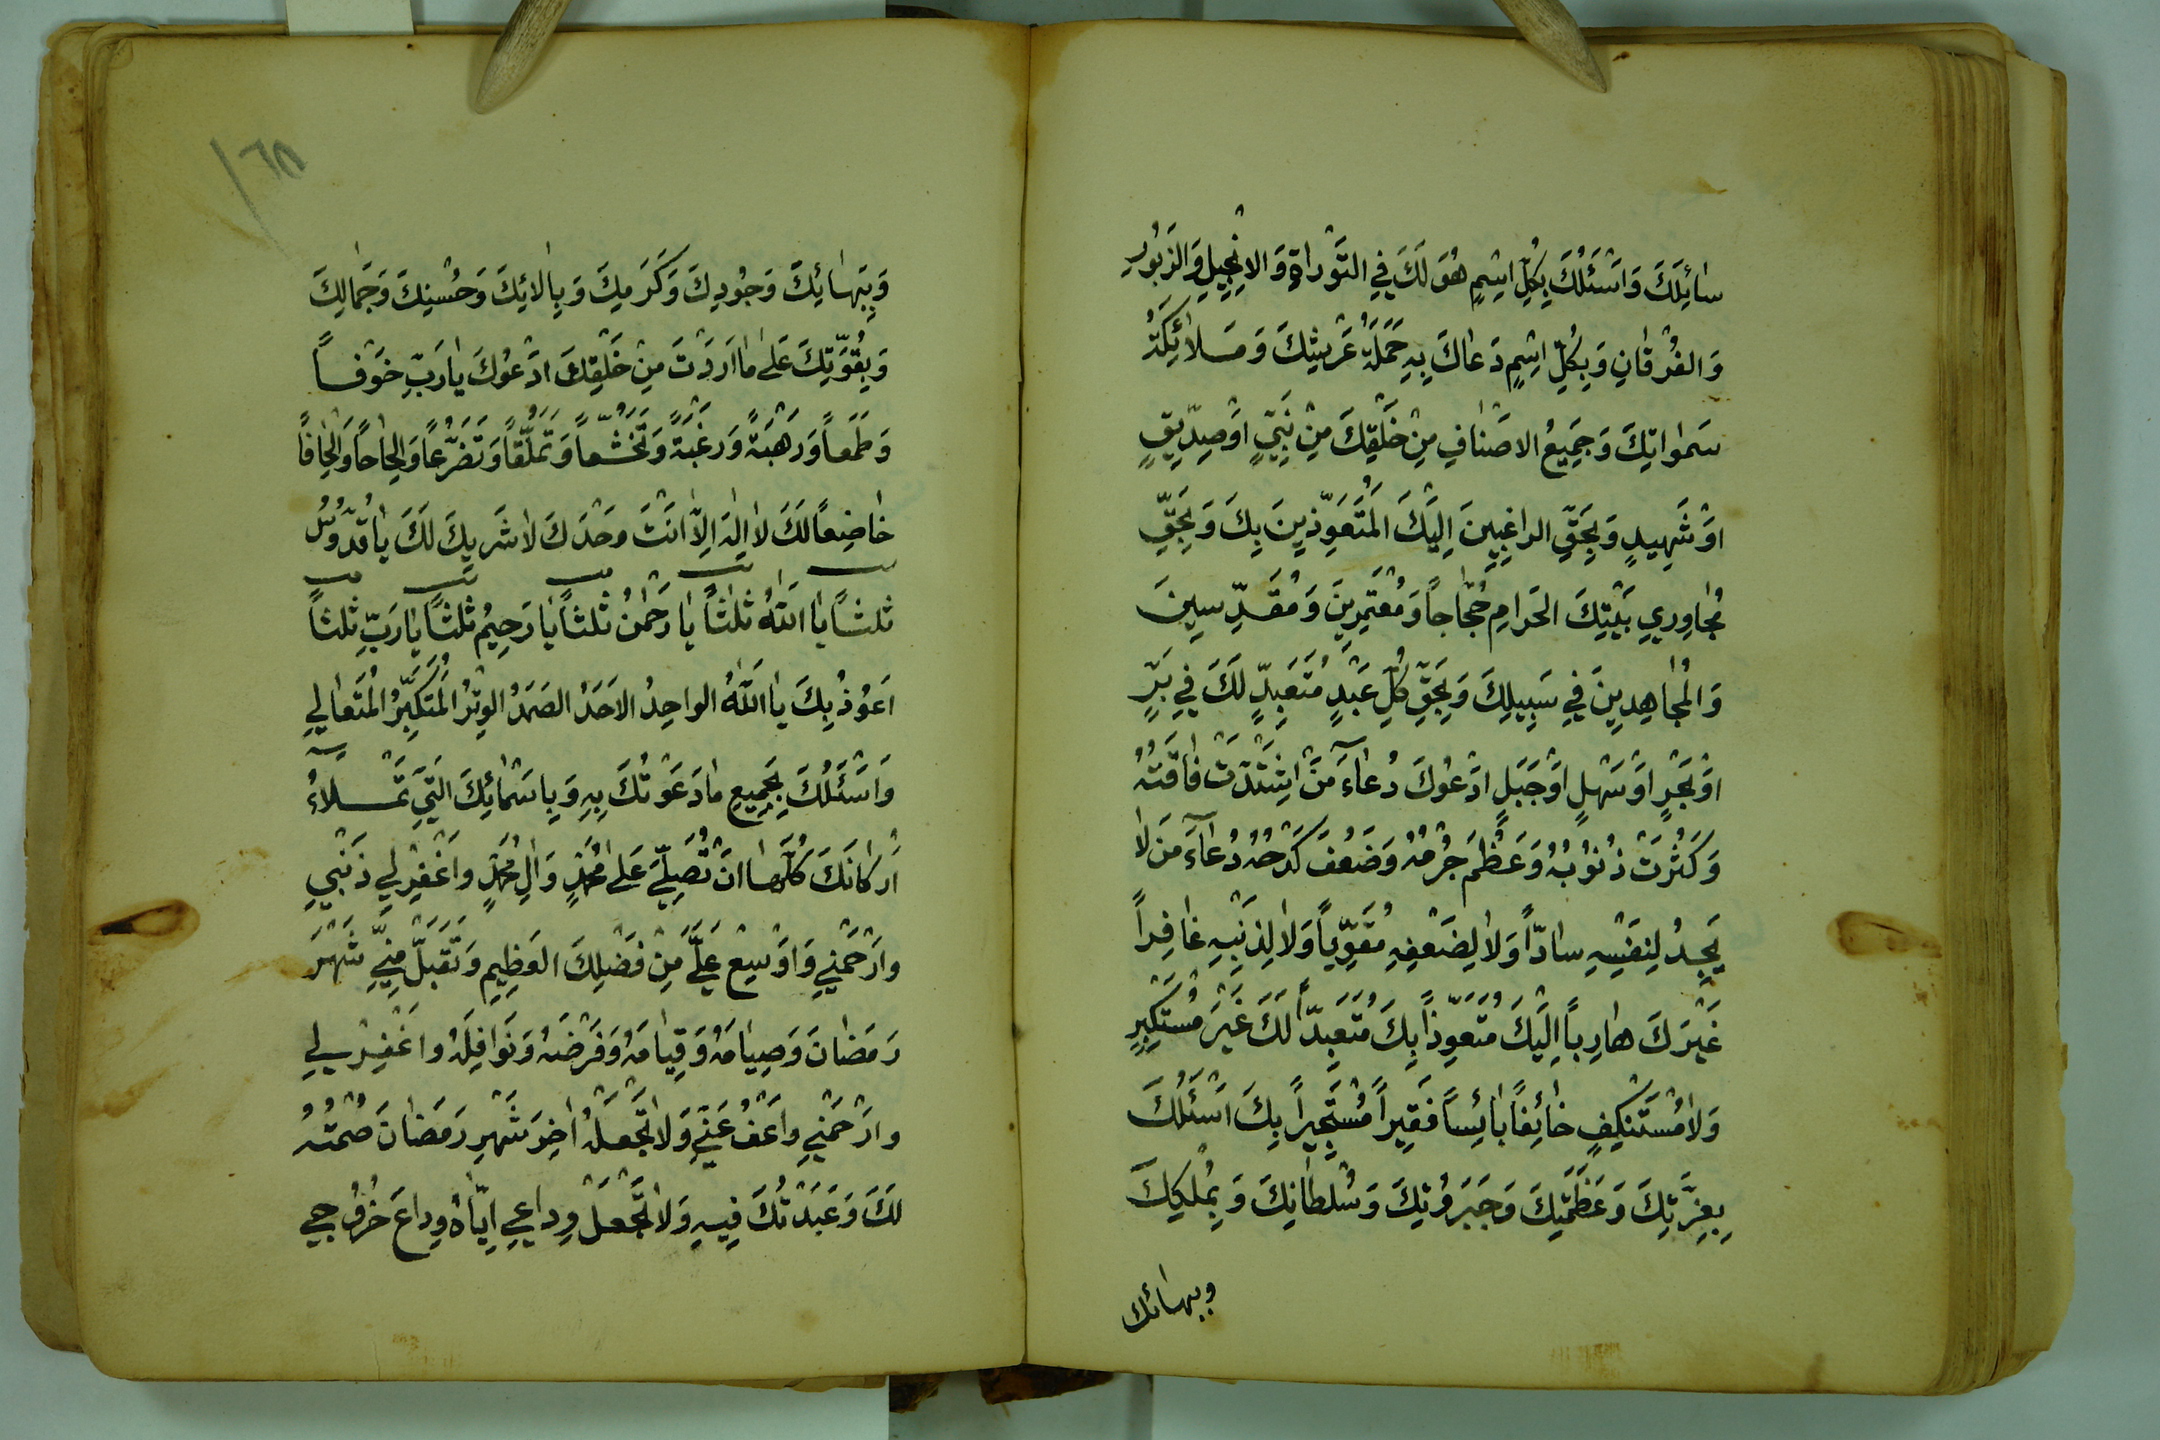 سٰائِلَكَ وَاَسْئَلُكَ بِكُلِّ اسْمٍ هُوَ لَكَ فِي التَّوْراةِ وَالاِنْجِيلِ وَالزَّبُورِ
وَالفُرْقٰانِ وَبِكُلِّ اسْمٍ دَعٰاكَ بِهِ حَمَلَةُ عَرْشِكَ وَمَلاٰئِكَةُ
سَمٰوٰاتِكَ وَجَمِيعُ الاَصْنٰافِ مِنْ خَلْقِكَ مِنْ نَبِيٍّ اَوْ صِدِّيقٍ
اَوْ شَهِيدٍ وَبِحَقِّ الراغِبِينَ اِلَيْكَ المُتَعَوِّذِينَ بِكَ وَبِحَقِّ
مُجٰاوِرِي بَيْتِكَ الحَرامِ حُجّٰاجاً وَمُعْتَمِرِينَ وَمُقَدِّسِينَ
وَالْمُجٰاهِدِينَ فِي سَبِيلِكَ وَبِحَقِّ كُلِّ عَبْدٍ مُتَعَبِّدٍ لَكَ فِي بَرٍّ
اَوْ بَحْرٍ اَوْ سَهْلٍ اَوْ جَبَلٍ اَدْعُوكَ دُعٰآءَ مَنْ اشْتَدَّتْ فٰاقَتُهُ
وَكَثُرَتْ ذُنُوبُهُ وَعَظُمَ جُرْمُهُ وَضَعُفَ كَدْحُهُ دُعٰآءَ مَنْ لاٰ
يَجِدُ لِنَفْسِهِ سٰادّاً وَلاٰ لِضَعْفِهِ مُقَوِّياً وَلاٰ لِذَنْبِهِ غٰافِراً
غَيْرَكَ هٰارِباً اِلَيْكَ مُتَعَوِّذاً بِكَ مُتَعَبِّداً لَكَ غَيْرَ مُسْتَكْبِرٍ
وَلاٰ مُسْتَنْكِفٍ خٰائِفاً بٰائِساً فَقِيراً مُسْتَجِيراً بِكَ اَسْئَلُكَ
بِعِزَّتِكَ وَعَظَمَتِكَ وَجَبَرُوتِكَ وَسُلْطٰانِكَ وَبِمُلْكِكَ
وببهائك
١٦٨
وَبِبَهٰائِكَ وَجُودِكَ وَكَرَمِكَ وَبِاٰلائِكَ وَحُسْنِكَ وَجَمٰالِكَ
وَبِقُوَّتِكَ عَلىٰ مٰا اَرَدْتَ مِنْ خَلْقِكَ اَدْعُوكَ يٰا رَبِّ خَوْفاً
وَطَمَعاً وَرَهْبَةً وَرَغْبَةً وَتَخَشُّعاً وَتَمَلُّقاً وَتَضَرُّعاً وَاِلْحٰاحاً وَاِلْحٰافاً
خٰاضِعاً لَكَ لاٰ اِلٰهَ اِلاّٰ اَنْتَ وَحْدَكَ لاٰ شَرِيكَ لَكَ يٰا قُدُّوسُ
ثلثاً يٰا اَللهُ ثلٰثاً يٰا رَحْمٰنُ ثلٰثاً يٰا رَحِيمُ ثلٰثاً يٰا رَبِّ ثلٰثاً
اَعُوذُ بِكَ يٰا اَللهُ الواحِدُ الاَحَدُ الصَمَدُ الوِتْرُ المُتَكَبِّرُ المُتَعٰالِي
وَاَسْئَلُكَ بِجَمِيعِ مٰا دَعَوْتُكَ بِهِ وَبِاَسْمٰائِكَ الَّتِي تَمْلاَءُ
اَرْكٰانَكَ كُلَّهٰا اَنْ تُصَلِّيَ عَلىٰ مُحَمَّدٍ وَاٰلِ مُحَمَّدٍ وَاغْفِرْ لِي ذَنْبِي
وارْحَمْنِي وَاَوْسِعْ عَلَيَّ مِنْ فَضْلِكَ العَظِيمِ وَتَقَبَّلْ مِنِّي شَهْرَ
رَمَضٰانَ وَصِيٰامَهُ وَقِيٰامَهُ وَفَرْضَهُ وَنَوٰافِلَهُ واغْفِرْ لِي
وارْحَمْنِي واعْفُ عَنِّي وَلاٰ تَجْعَلْهُ اٰخِرَ شَهْرِ رَمَضٰانَ صُمْتُهُ
لَكَ وَعَبَدْتُكَ فِيهِ وَلاٰ تَجْعَلْ وِداعِي اِيّٰاهُ وِداعَ خُرُوجِي